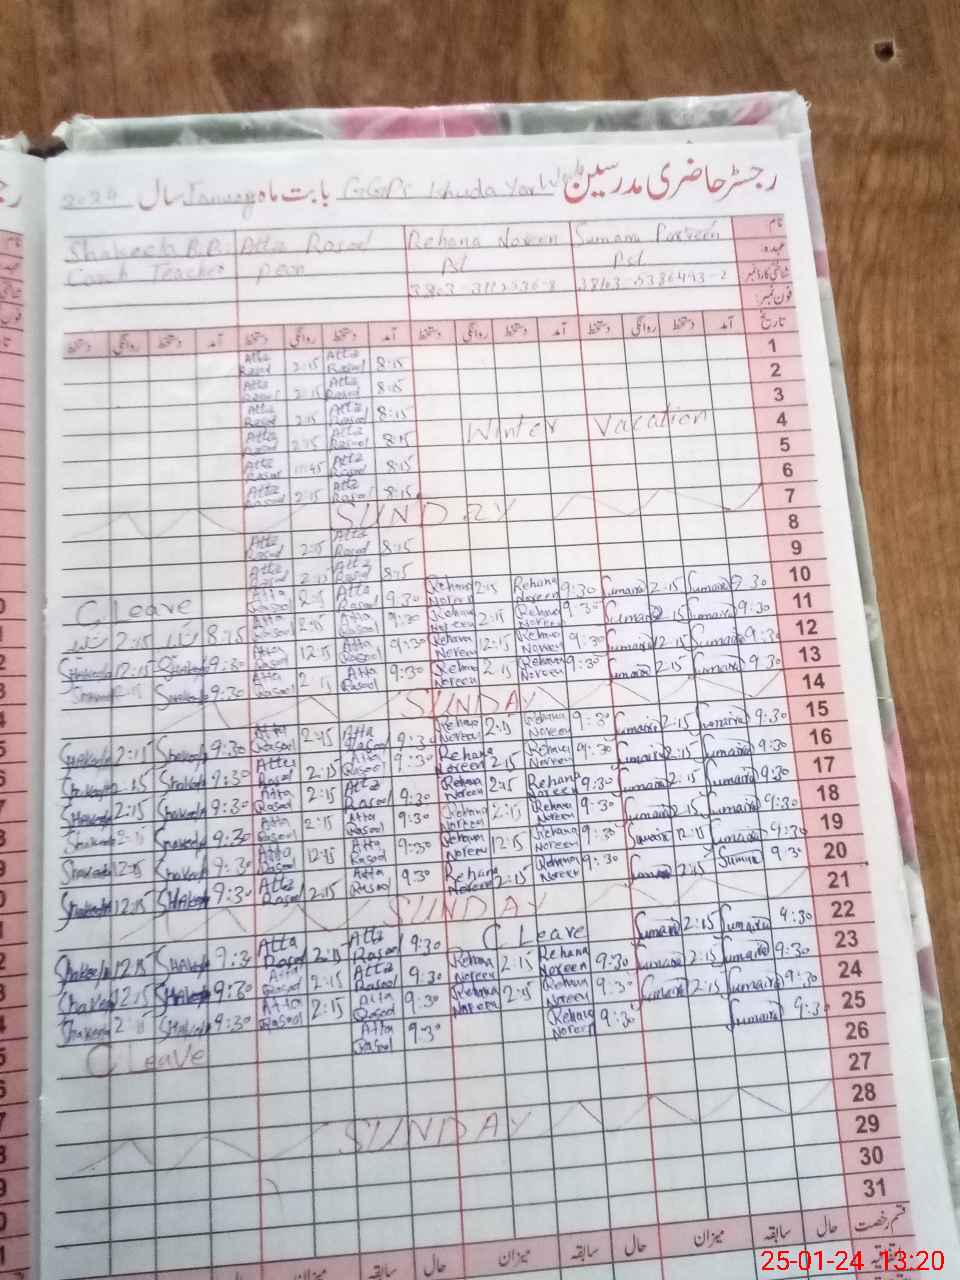 رجسٹر حاضری مدرسین GGPS Khuda Yar بابت ماہ January سال 2024
نام Sumaira Parveen Rehana Noreen Atta Rasool Shakeela B.B.
عہدہ: Pst Pst peon Coach Teacher
شناختی کارڈ نمبر
فون نمبر:
تاریخ آمد دستخط روانگی دستخط آمد دستخط روانگی دستخط آمد دستخط روانگی دستخط آمد دستخط روانگی دستخط
1 8:15 Atta Rasool 2:15 Atta Rasool
2 8:15 Atta Rasool 2:15 Atta Rasool
3 8:15 Atta Rasool 2:15 Atta Rasool
4 Winter Vacation 8:15 Atta Rasool 2:15 Atta Rasool
5 8:15 Atta Rasool Atta Rasool
6 8:15 Atta Rasool 2:15 Atta Rasool
7 SUNDAY
8 8:15 Atta Rasool 2:15 Atta Rasool
9 8:15 Atta Rasool 2:15 Atta Rasool
10 9:30 Sumaira 2:15 Sumaira 9:30 Rehana Noreen 2:15 Rehana Noreen 9:30 Atta Rasool 2:15 Atta Rasool C Leave
11 9:30 Sumaira 2:15 Sumaira 9:30 Rehana Noreen 2:15 Rehana Noreen 9:30 Atta Rasool 2:15 Atta Rasool 8:15 2:15
12 9:30 Sumaira 12:15 Sumaira 9:30 Rehana Noreen 12:15 Rehana Noreen 9:30 Atta Rasool 12:15 Atta Rasool 9:30 Shakeela 12:15 Shakeela
13 9:30 Sumaira 2:15 Sumaira 9:30 Rehana Noreen 2:15 Rehana Noreen 9:30 Atta Rasool 2:15 Atta Rasool 9:30 Shakeela 2:15 Shakeela
14 SUNDAY
15 9:30 Sumaira 2:15 Sumaira 9:30 Rehana Noreen 2:15 Rehana Noreen 9:30 Atta Rasool 2:15 Atta Rasool 9:30 Shakeela 2:15 Shakeela
16 9:30 Sumaira 2:15 Sumaira 9:30 Rehana Noreen 2:15 Rehana Noreen 9:30 Atta Rasool 2:15 Atta Rasool 9:30 Shakeela 2:15 Shakeela
17 9:30 Sumaira 2:15 Sumaira 9:30 Rehana Noreen 2:15 Rehana Noreen 9:30 Atta Rasool 2:15 Atta Rasool 9:30 Shakeela 2:15 Shakeela
18 9:30 Sumaira 2:15 Sumaira 9:30 Rehana Noreen 2:15 Rehana Noreen 9:30 Atta Rasool 2:15 Atta Rasool 9:30 Shakeela 2:15 Shakeela
19 9:30 Sumaira 12:15 Sumaira 9:30 Rehana Noreen 12:15 Rehana Noreen 9:30 Atta Rasool 12:15 Atta Rasool 9:30 Shakeela 12:15 Shakeela
20 9:30 Sumaira 2:15 Sumaira 9:30 Rehana Noreen 2:15 Rehana Noreen 9:30 Atta Rasool 2:15 Atta Rasool 9:30 Shakeela 12:15 Shakeela
21 SUNDAY
22 9:30 Sumaira 2:15 Sumaira C Leave 9:30 Atta Rasool 2:15 Atta Rasool 9:30 Shakeela 12:15 Shakeela
23 9:30 Sumaira 2:15 Sumaira 9:30 Rehana Noreen 2:15 Rehana Noreen 9:30 Atta Rasool 2:15 Atta Rasool 9:30 Shakeela 12:15 Shakeela
24 9:30 Sumaira 2:15 Sumaira 9:30 Rehana Noreen 2:15 Rehana Noreen 9:30 Atta Rasool 2:15 Atta Rasool 9:30 Shakeela 2:15 Shakeela
25 9:30 Sumaira 9:30 Rehana Noreen 9:30 Atta Rasool C Leave
26
27
28 SUNDAY
29
30
31
قسم رخصت حال سابقہ میزان حال سابقہ میزان حال سابقہ میزان
25-01-24 13:20